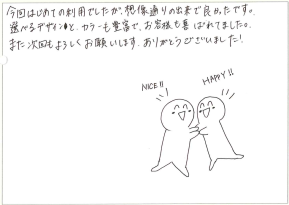 今回はじめての利用でしたが、想像通りの出来で良かったです。
選べるデザインと、カラーも豊富で、お客様も喜ばれてました。
また次回もよろしくお願いします。ありがとうございました!
NICE!!
HAPPY!!